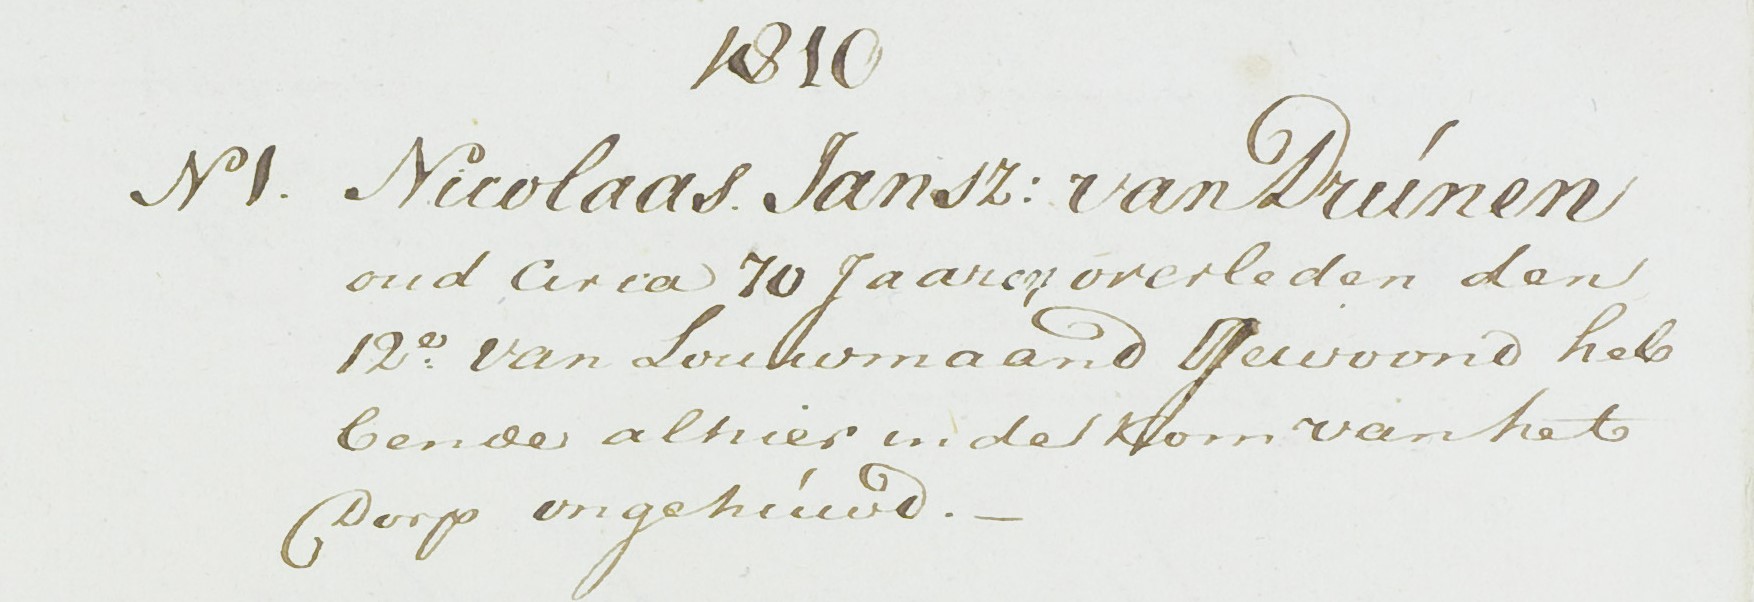 1810
No 1. Nicolaas Jansz: van Drúnen
oud Circa 70 Jaaren overleden den
12e van Louwmaand Gewoond heb
bende alhier in de Kom van het
Dorp ongehúwd. —